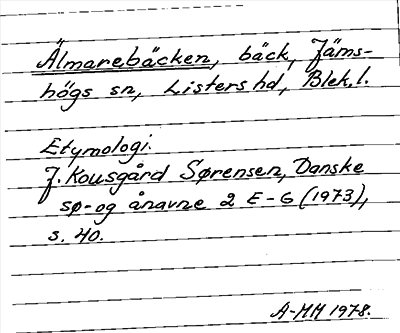 Älmarebäcken, bäck, Jäms-
högs sn, Listers hd, Blek. l.
Etymologi.
J. Kousgård Sørensen, Danske
sø- og ånavne 2 E-G (1973),
s. 40.
A-MH 1978.